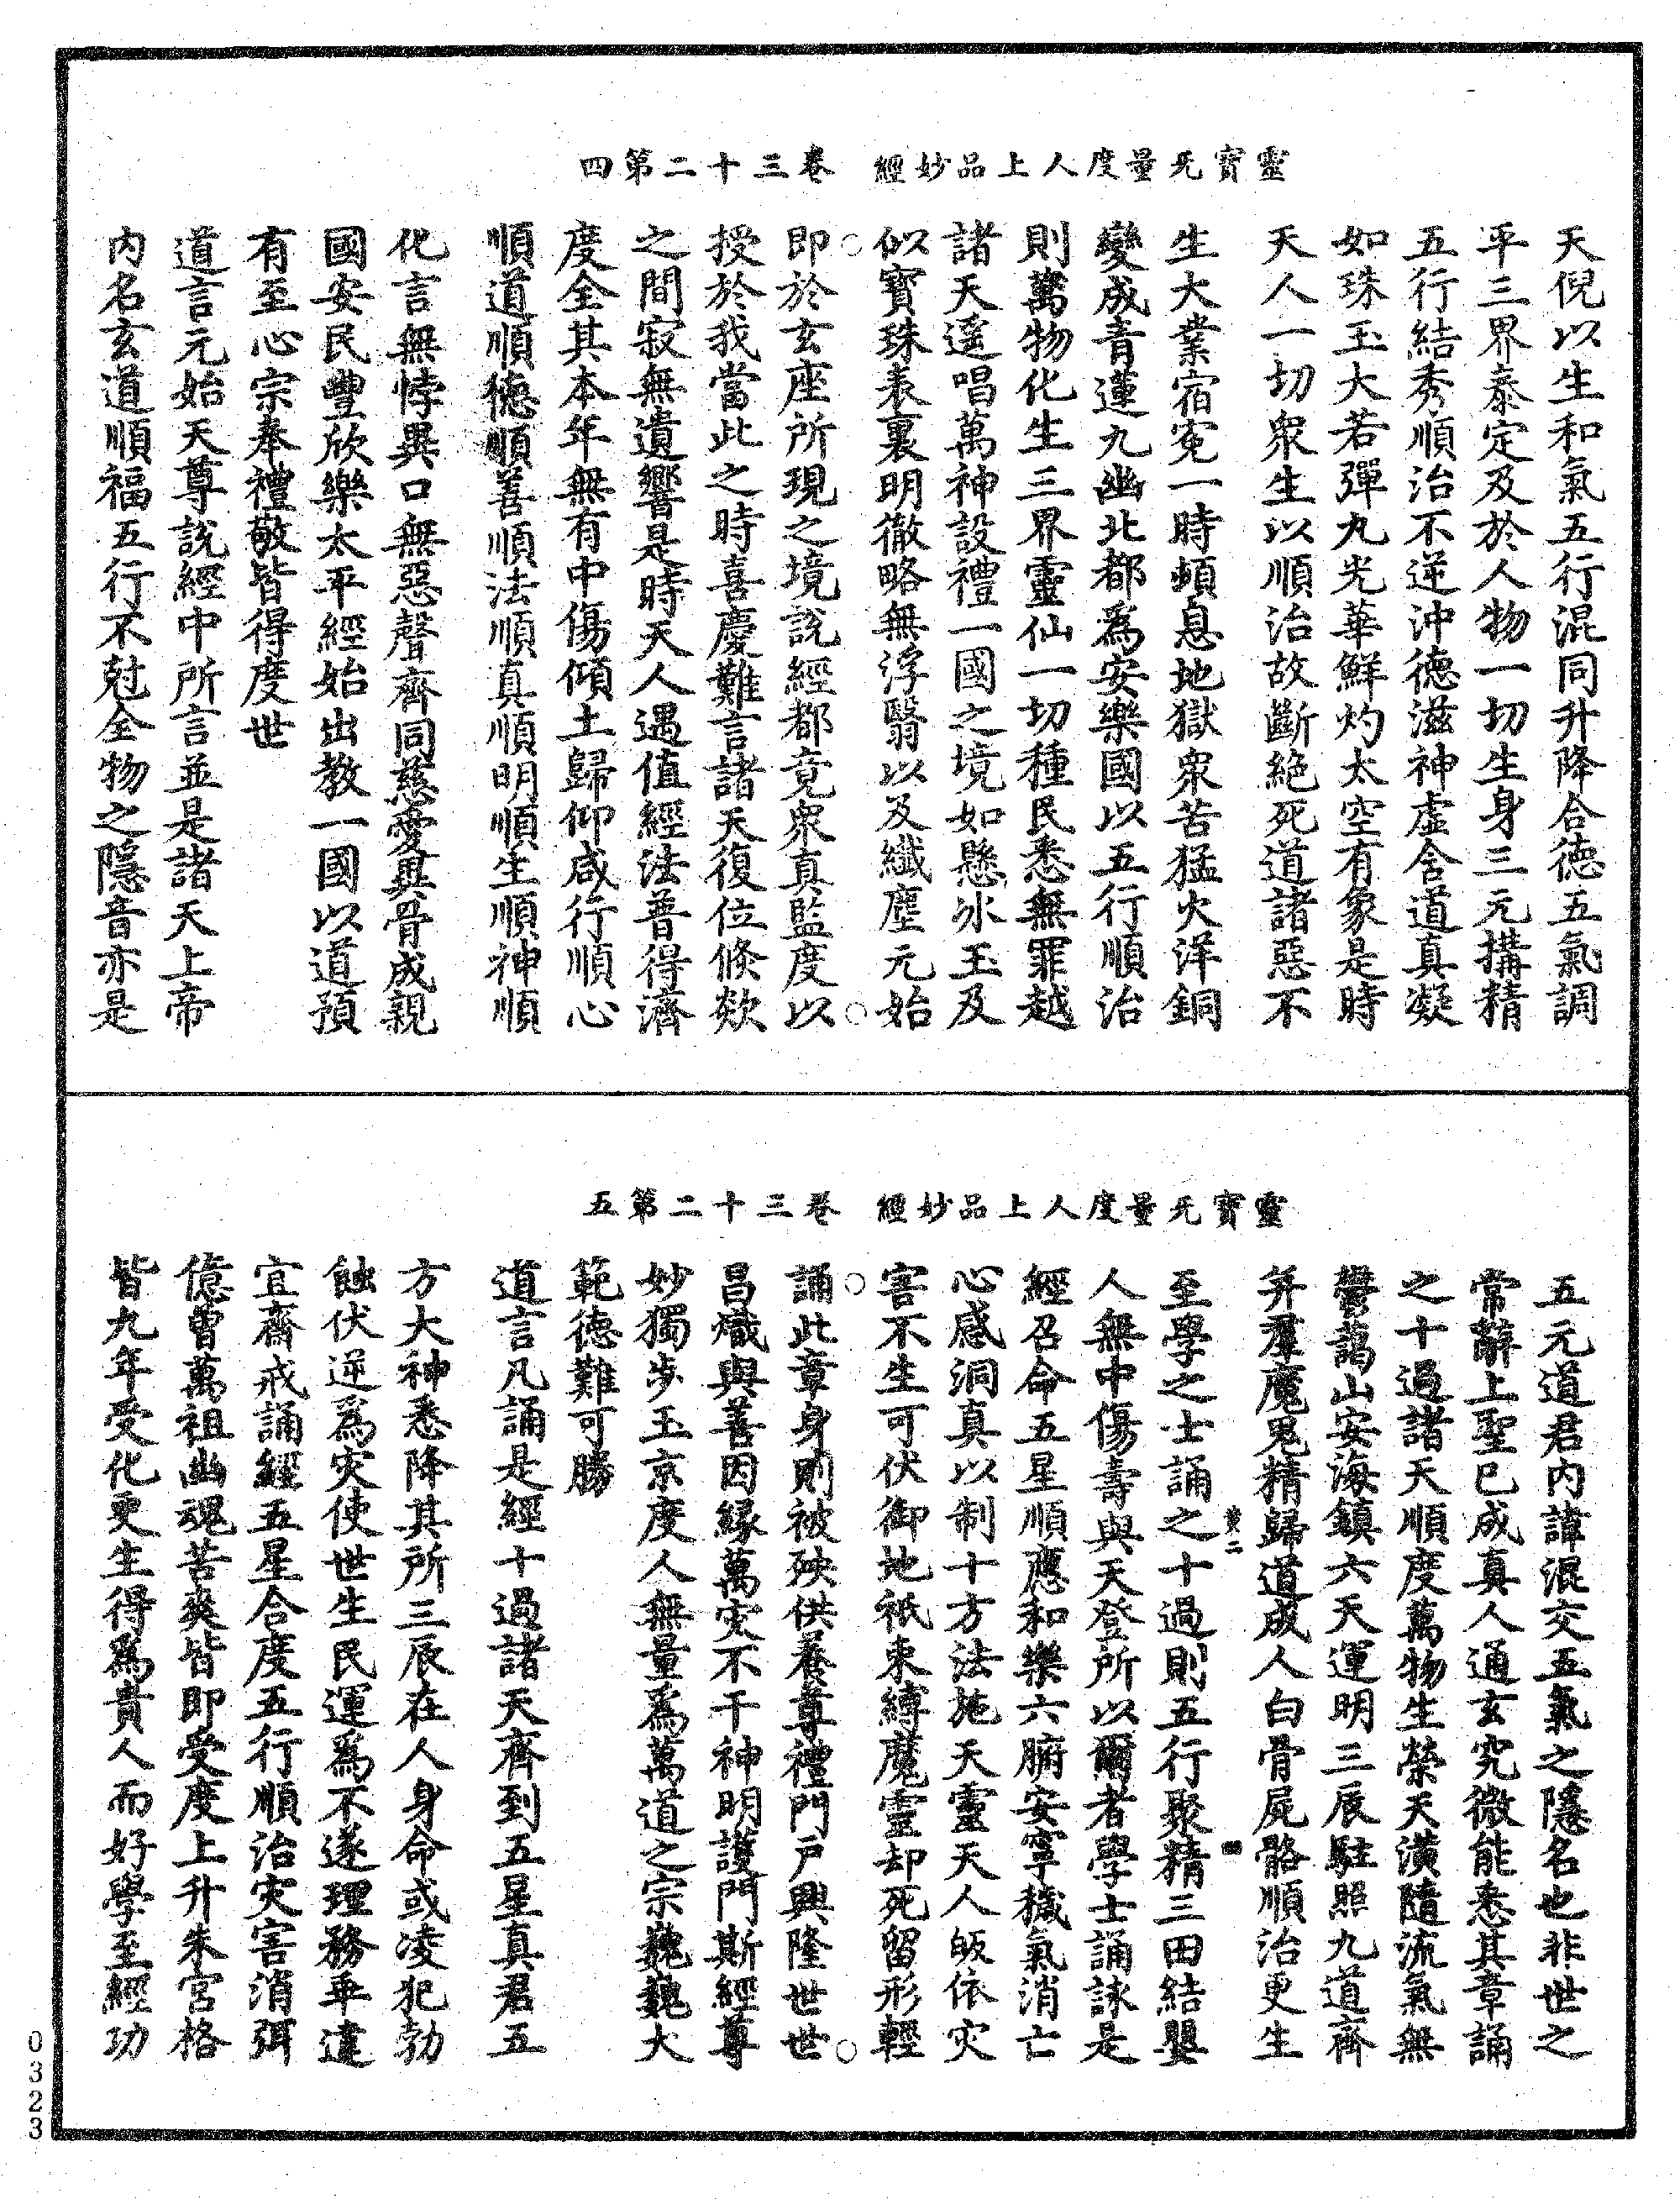 靈寶无量度人上品妙經　卷三十二第四
天倪以生和氣五行混同升降合德五氣調
平三界泰定及於人物一切生身三元搆精
五行結秀順治不逆沖德滋神虛含道真凝
如珠玉大若彈丸光華鮮灼太空有象是時
天人一切眾生以順治故斷絶死道諸惡不
生大業宿寃一時頓息地獄眾苦猛火洋銅
變成青蓮九幽北都爲安樂國以五行順治
則萬物化生三界靈仙一切種民悉無罪越
諸天遥唱萬神設禮一國之境如懸冰玉及
似寶珠表裏明徹略無浮翳以及纖塵元始
即於玄座所現之境説經都竟衆真監度以
授於我當此之時喜慶難言諸天復位倐欻
之間寂無遺響是時天人遇值經法普得濟
度全其本年無有中傷傾土歸仰咸行順心
順道順德順善順法順真順明順生順神順
化言無悖異口無惡聲齊同慈愛異骨成親
國安民豐欣樂太平經始出教一國以道預
有至心宗奉禮敬皆得度世
道言元始天尊說經中所言並是諸天上帝
内名玄道順福五行不尅全物之隱音亦是
靈寶无量度人上品妙經　卷三十二第五
五元道君内諱混交五氣之隱名也非世之
常辭上聖已成真人通玄究微能悉其章誦
之十過諸天順度萬物生榮天潢隨流氣無
鬱藹山安海鎮六天運明三辰駐照九道齊
并羣魔鬼精歸道成人白骨屍骼順治更生
至學之士誦之十過則五行聚精三田結嬰
人無中傷壽與天登所以爾者學士誦詠是
經召命五星順應和樂六腑安寧穢氣消亡
心感洞真以制十方法施天靈天人皈依灾
害不生可伏御地祇束縛魔靈却死留形輕
誦此章身則被殃供養尊禮門戸興隆世世
昌熾與善因緣萬灾不干神明護門斯經尊
妙獨步玉京度人無量爲萬道之宗巍巍大
範德難可勝
道言凡誦是經十過諸天齊到五星真君五
方大神悉降其所三辰在人身命或凌犯勃
蝕伏逆為灾使世生民運爲不遂理務乖違
宜齋戒誦經五星合度五行順治灾害消弭
億曾萬祖幽魂苦爽皆即受度上升朱宮格
皆九年受化更生得爲貴人而好學至經功
0323